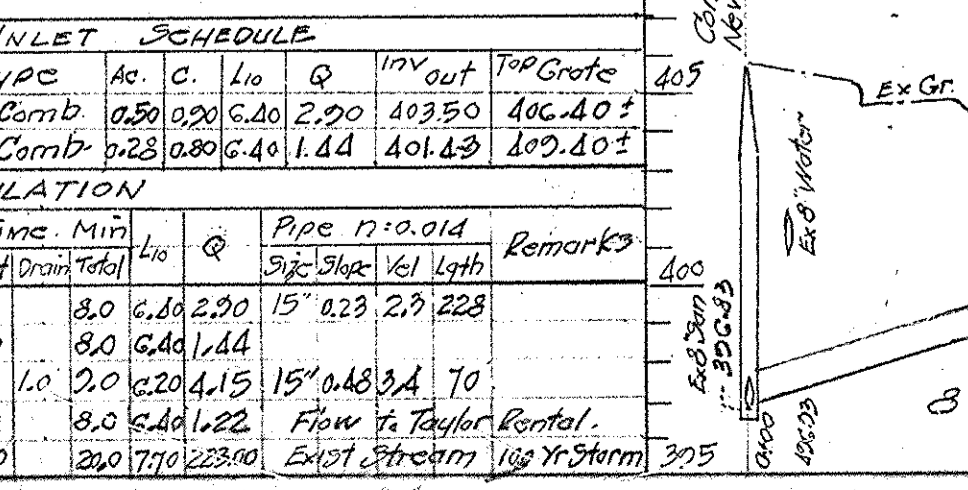 INLET SCHEDULE
Type Ac. C. L10 Q Inv out Top Grate
Comb. 0.50 0.90 6.40 2.90 403.50 406.40 ±
Comb. 0.28 0.80 6.40 1.44 401.43 409.40 ±
LATION
Time. Min L10 Q Pipe n:0.014 Remarks
Drain Total Size Slope Vel Lgth
8.0 6.40 2.90 15" 0.23 2.3 228
8.0 6.40 1.44
1.0 9.0 6.20 4.15 15" 0.48 3.4 70
8.0 6.40 1.22 Flow to Taylor Rental.
20.0 7.70 223.00 Exist Stream 100 Yr Storm
405
400
395
Con
New
Ex Gr.
Ex 8" Water
Ex 8" San
396.83
0+00